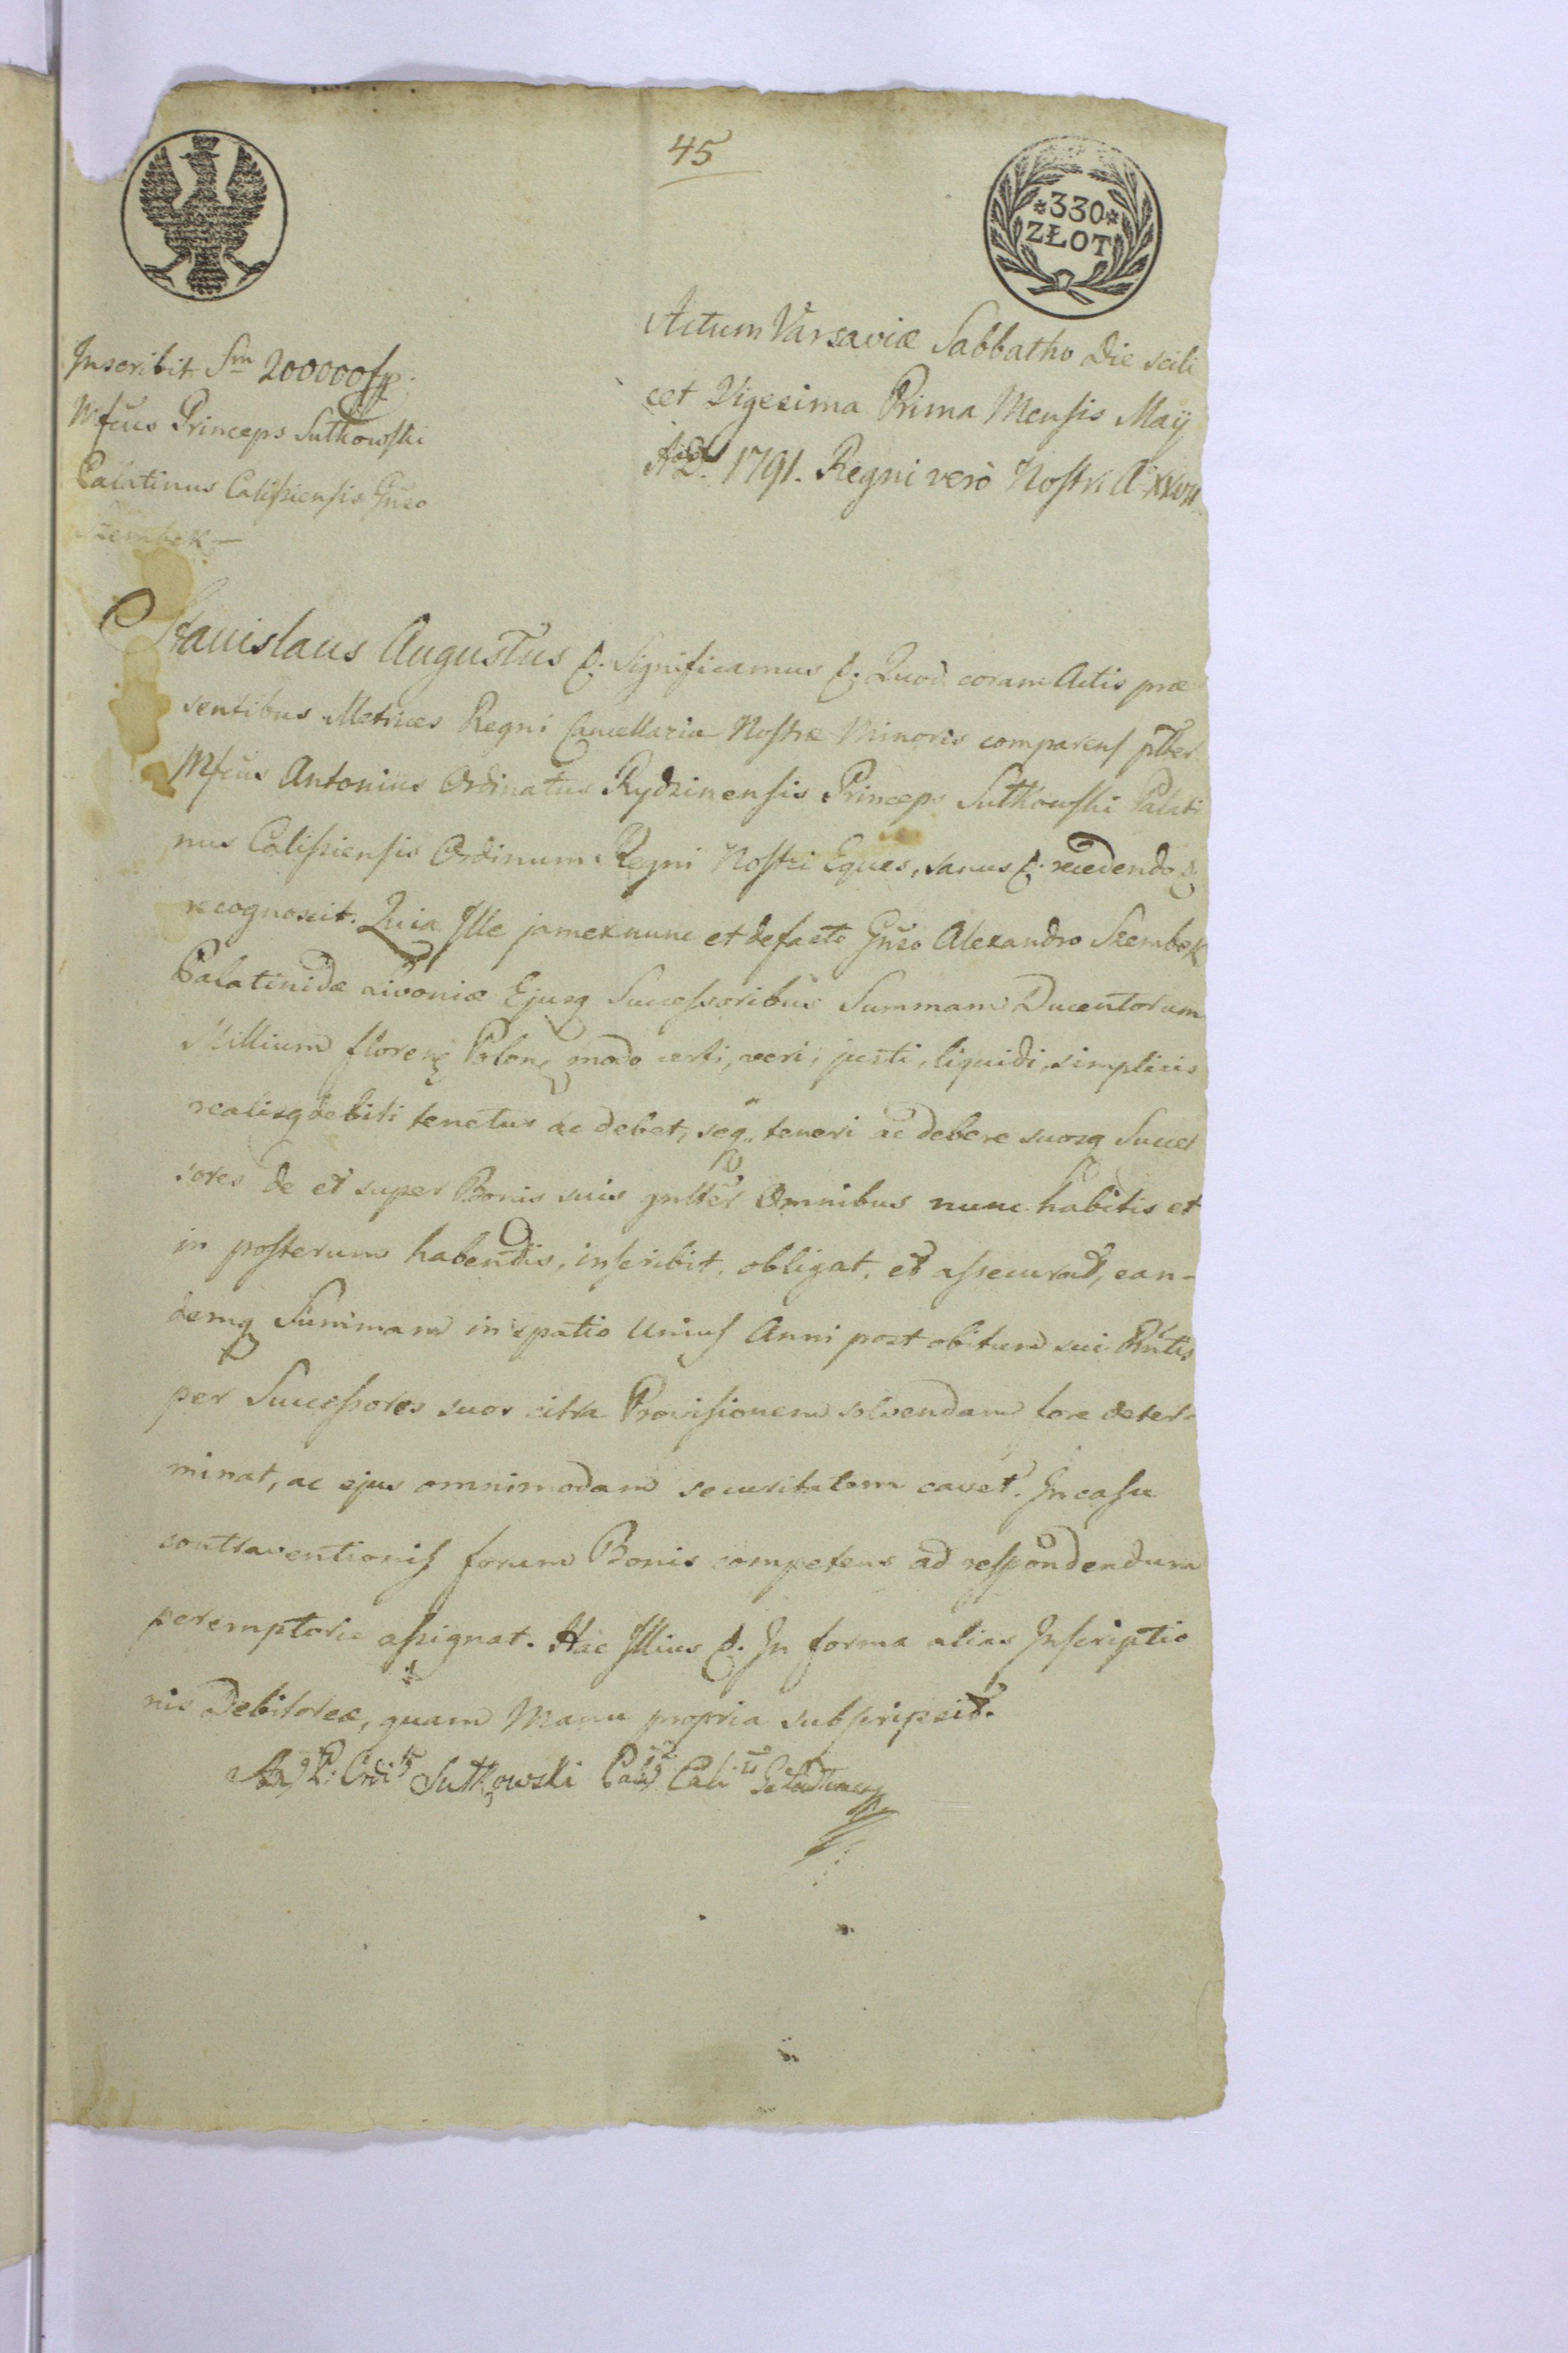 45
*330*
ZŁOT
Actum Varsaviæ Sabbatho Die scili
cet Vigesima Prima Mensis Maÿ
1791. Regni verò Nostri Aº XXVII
Inscribit Sm̄ 200000 fp.
Mfcus Princeps Sułkowski
Palatinus Calissiensis Gnso
Szembek —
Stanislaus Augustus &. Significamus &. Quod coram Actis præ
sentibus Metrices Regni Cancellariæ Nostræ Minoris comparens plter
Mfcus Antonius Ordinatus Rydzinensis Princeps Sułkowski Palati
nus Calissiensis Ordinum Regni Nostri Eques, sanus &. recedendo &
recognoscit. Quia Ille jamexnunc et defacto Gnso Alexandro Szembek
Palatinidæ Livoniæ Ejusq Successoribus Summam Ducentorum
Millium floren Polon modo certi, veri, justi, liquidi, simplicis
realisq debiti tenetur ac debet, seq teneri ac debere suosq Succes
sores de et super Bonis suis gnlter Omnibus nunc habitis et
in posterum habendis, inscribit, obligat, et assecurat, ean-
demq Summam in spatio Unius Anni post obitum sui Rntis
per Successores suos citra Provisionem solvendam fore deter-
minat, ac ejus omnimodam securitatem cavet. In casu
contraventionis forum Bonis competens ad respondendum
peremptorie assignat. Hac Illius &. In forma alias Inscriptio
nis Debitoreæ, quam Manu propria subscripsit.
Sułkowski